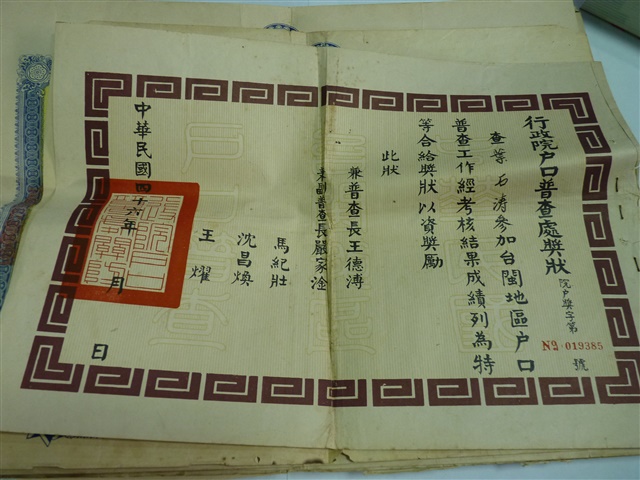 行政院戶口普查處獎狀
院戶獎字第
№ 019385
號
查葉石濤參加台閩地區戶口
普查工作經考核結果成績列為特
等合給獎狀以資獎勵
此狀
兼普查長王德溥
兼副普查長嚴家淦
馬紀壯
沈昌煥
王燿
中華民國四十六年 月 日